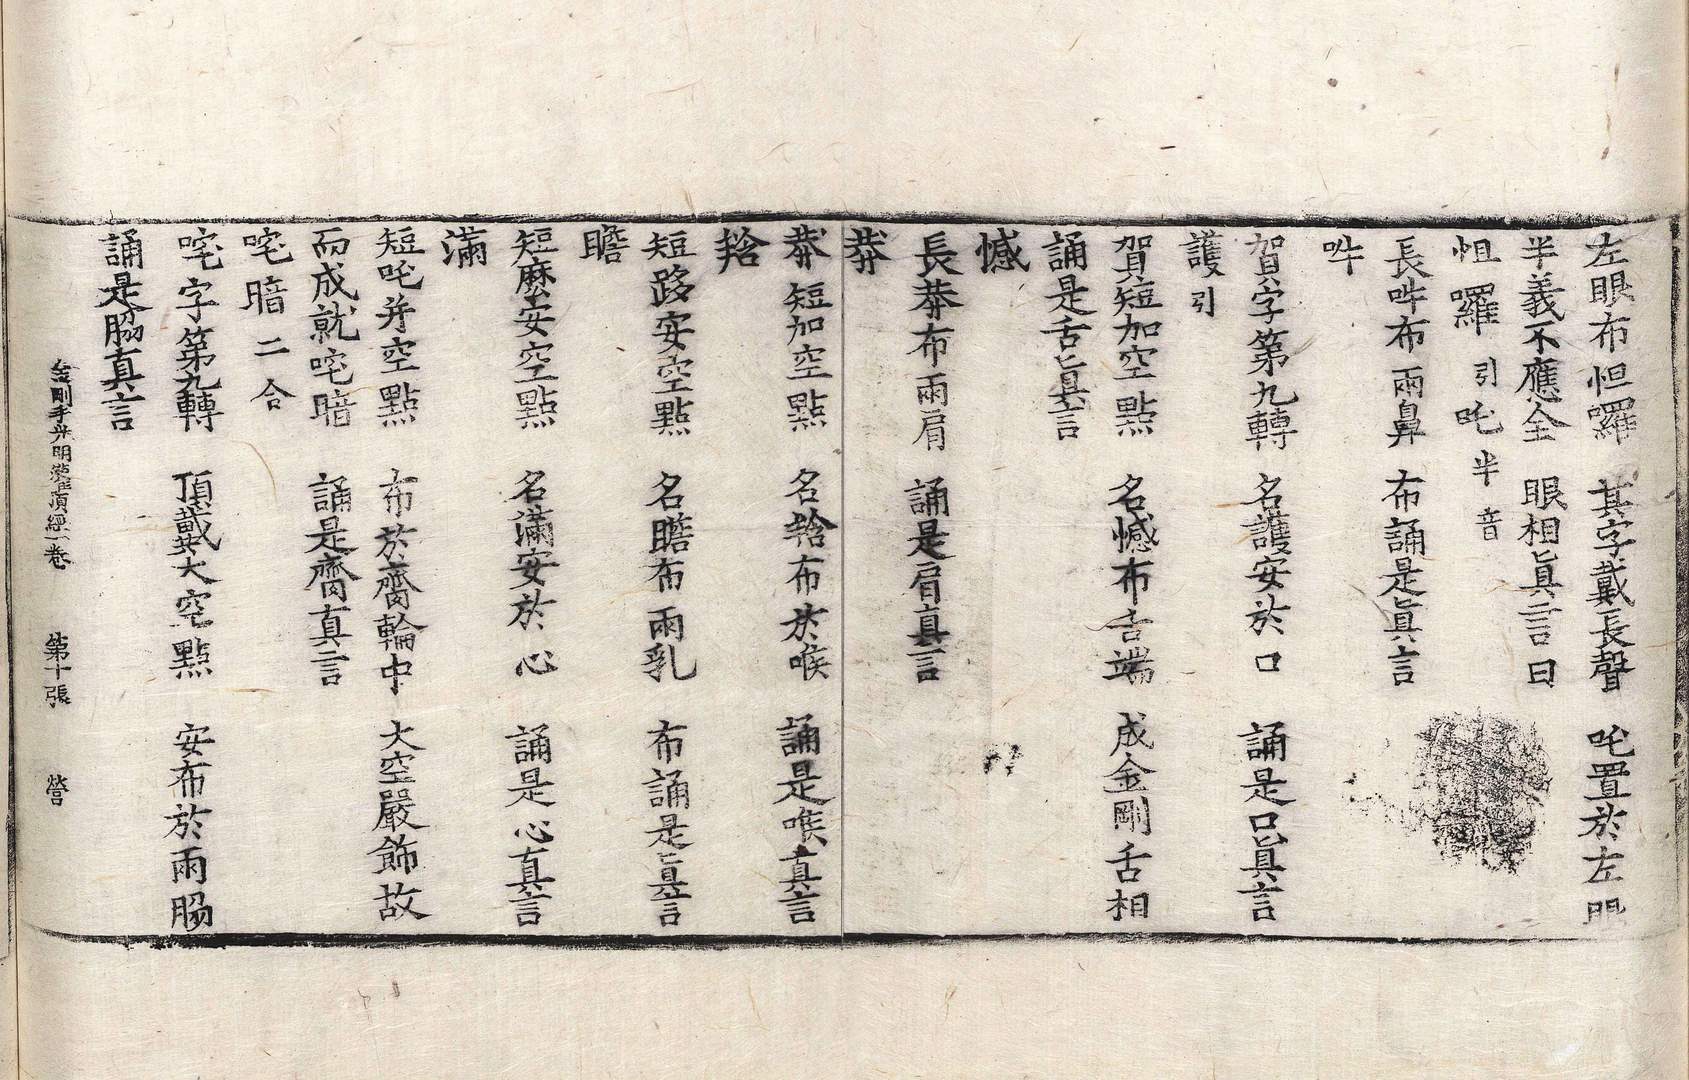 左眼布怛囉　其字戴長聲　吒置於左眼
半義不應全　眼相眞言曰
怛囉引吒半音
長吽布兩鼻　布誦是眞言
吽
賀字第九轉　名護安於口　誦是口眞言
護引
賀短加空點　名憾布舌端　成金剛舌相
誦是舌眞言
憾
長莽布兩肩　誦是肩真言
莽
莽短加空點　名𤚥布於喉　誦是喉真言
𤚥
短路安空點　名瞻布兩乳　布誦是眞言
瞻
短麽安空點　名滿安於心　誦是心真言
滿
短吒并空點　布於齊輪中　大空嚴飾故
而成就咤暗　誦是齊真言
咤暗二合
咤字第九轉　頂戴大空點　安布於兩脇
誦是脇真言
金剛手光明灌頂經一卷　第十張　營